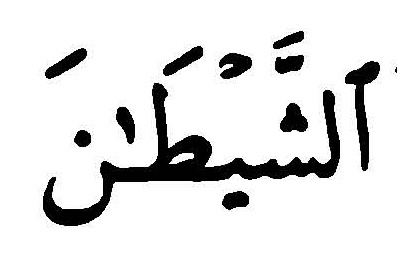 ٱلشَّيْطَٰنَ